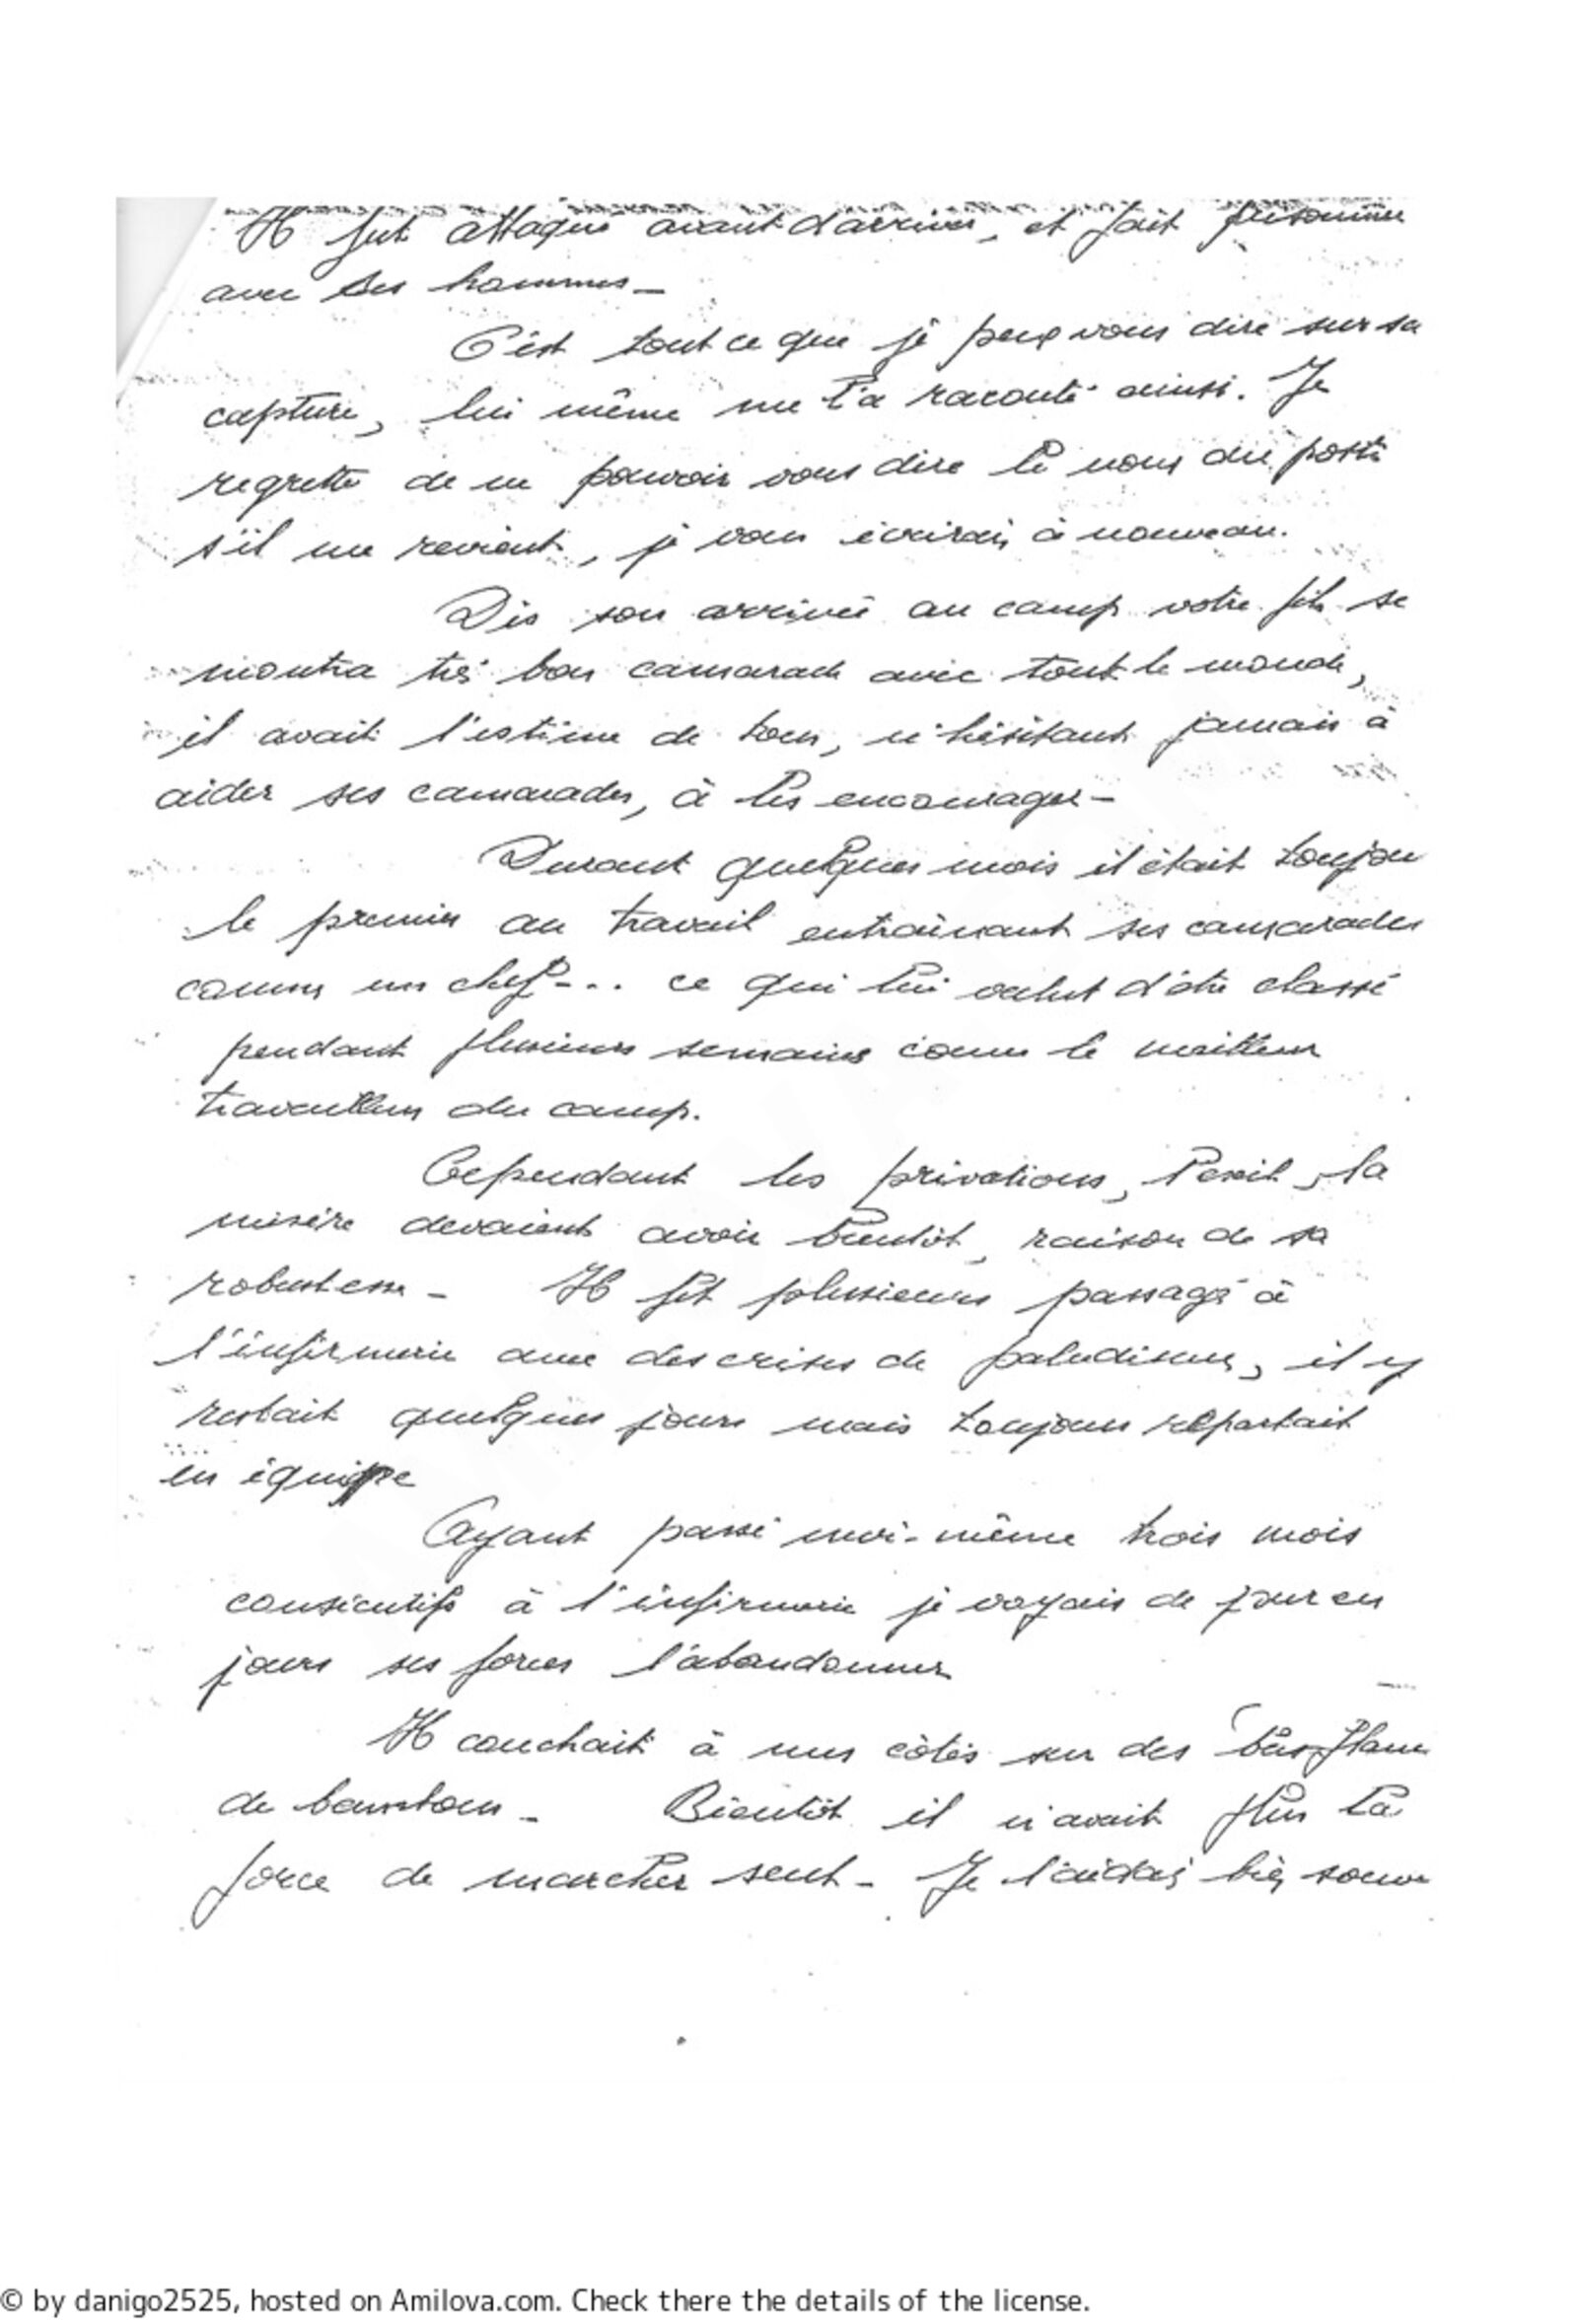 Il fut attaqué avant d'arriver, et fait prisonnier
avec ses hommes_
C'est tout ce que je peux vous dire sur sa
capture, lui même me l'a raconté ainsi. Je
regrette de ne pouvoir vous dire le nom du poste
s'il me revient, je vous écrirai à nouveau.
Dès son arrivée au camp votre fils se
montra très bon camarade avec tout le monde,
il avait l'estime de tous, n'hésitant jamais à
aider ses camarades, à les encourager_
Durant quelques mois il était toujou
le premier au travail entraînant ses camarades
comme un chef_... ce qui lui valut d'être classé
pendant plusieurs semaines comme le meilleur
travailleur du camp.
Cependant les privations, l'exil, la
misère devaient avoir bientôt raison de sa
robustesse_ Il fit plusieurs passages à
l'infirmerie avec des crises de paludisme, il y
restait quelques jours mais toujours repartait
en équipe
Ayant passé moi-même trois mois
consécutifs à l'infirmerie je voyais de jour en
jours ses forces l'abandonner
Il couchait à mes côtés sur des bas-flanc
de bambous_ Bientôt il n'avait plus la
force de marcher seul_ Je l'aidai bien souve
© by danigo2525, hosted on Amilova.com. Check there the details of the license.